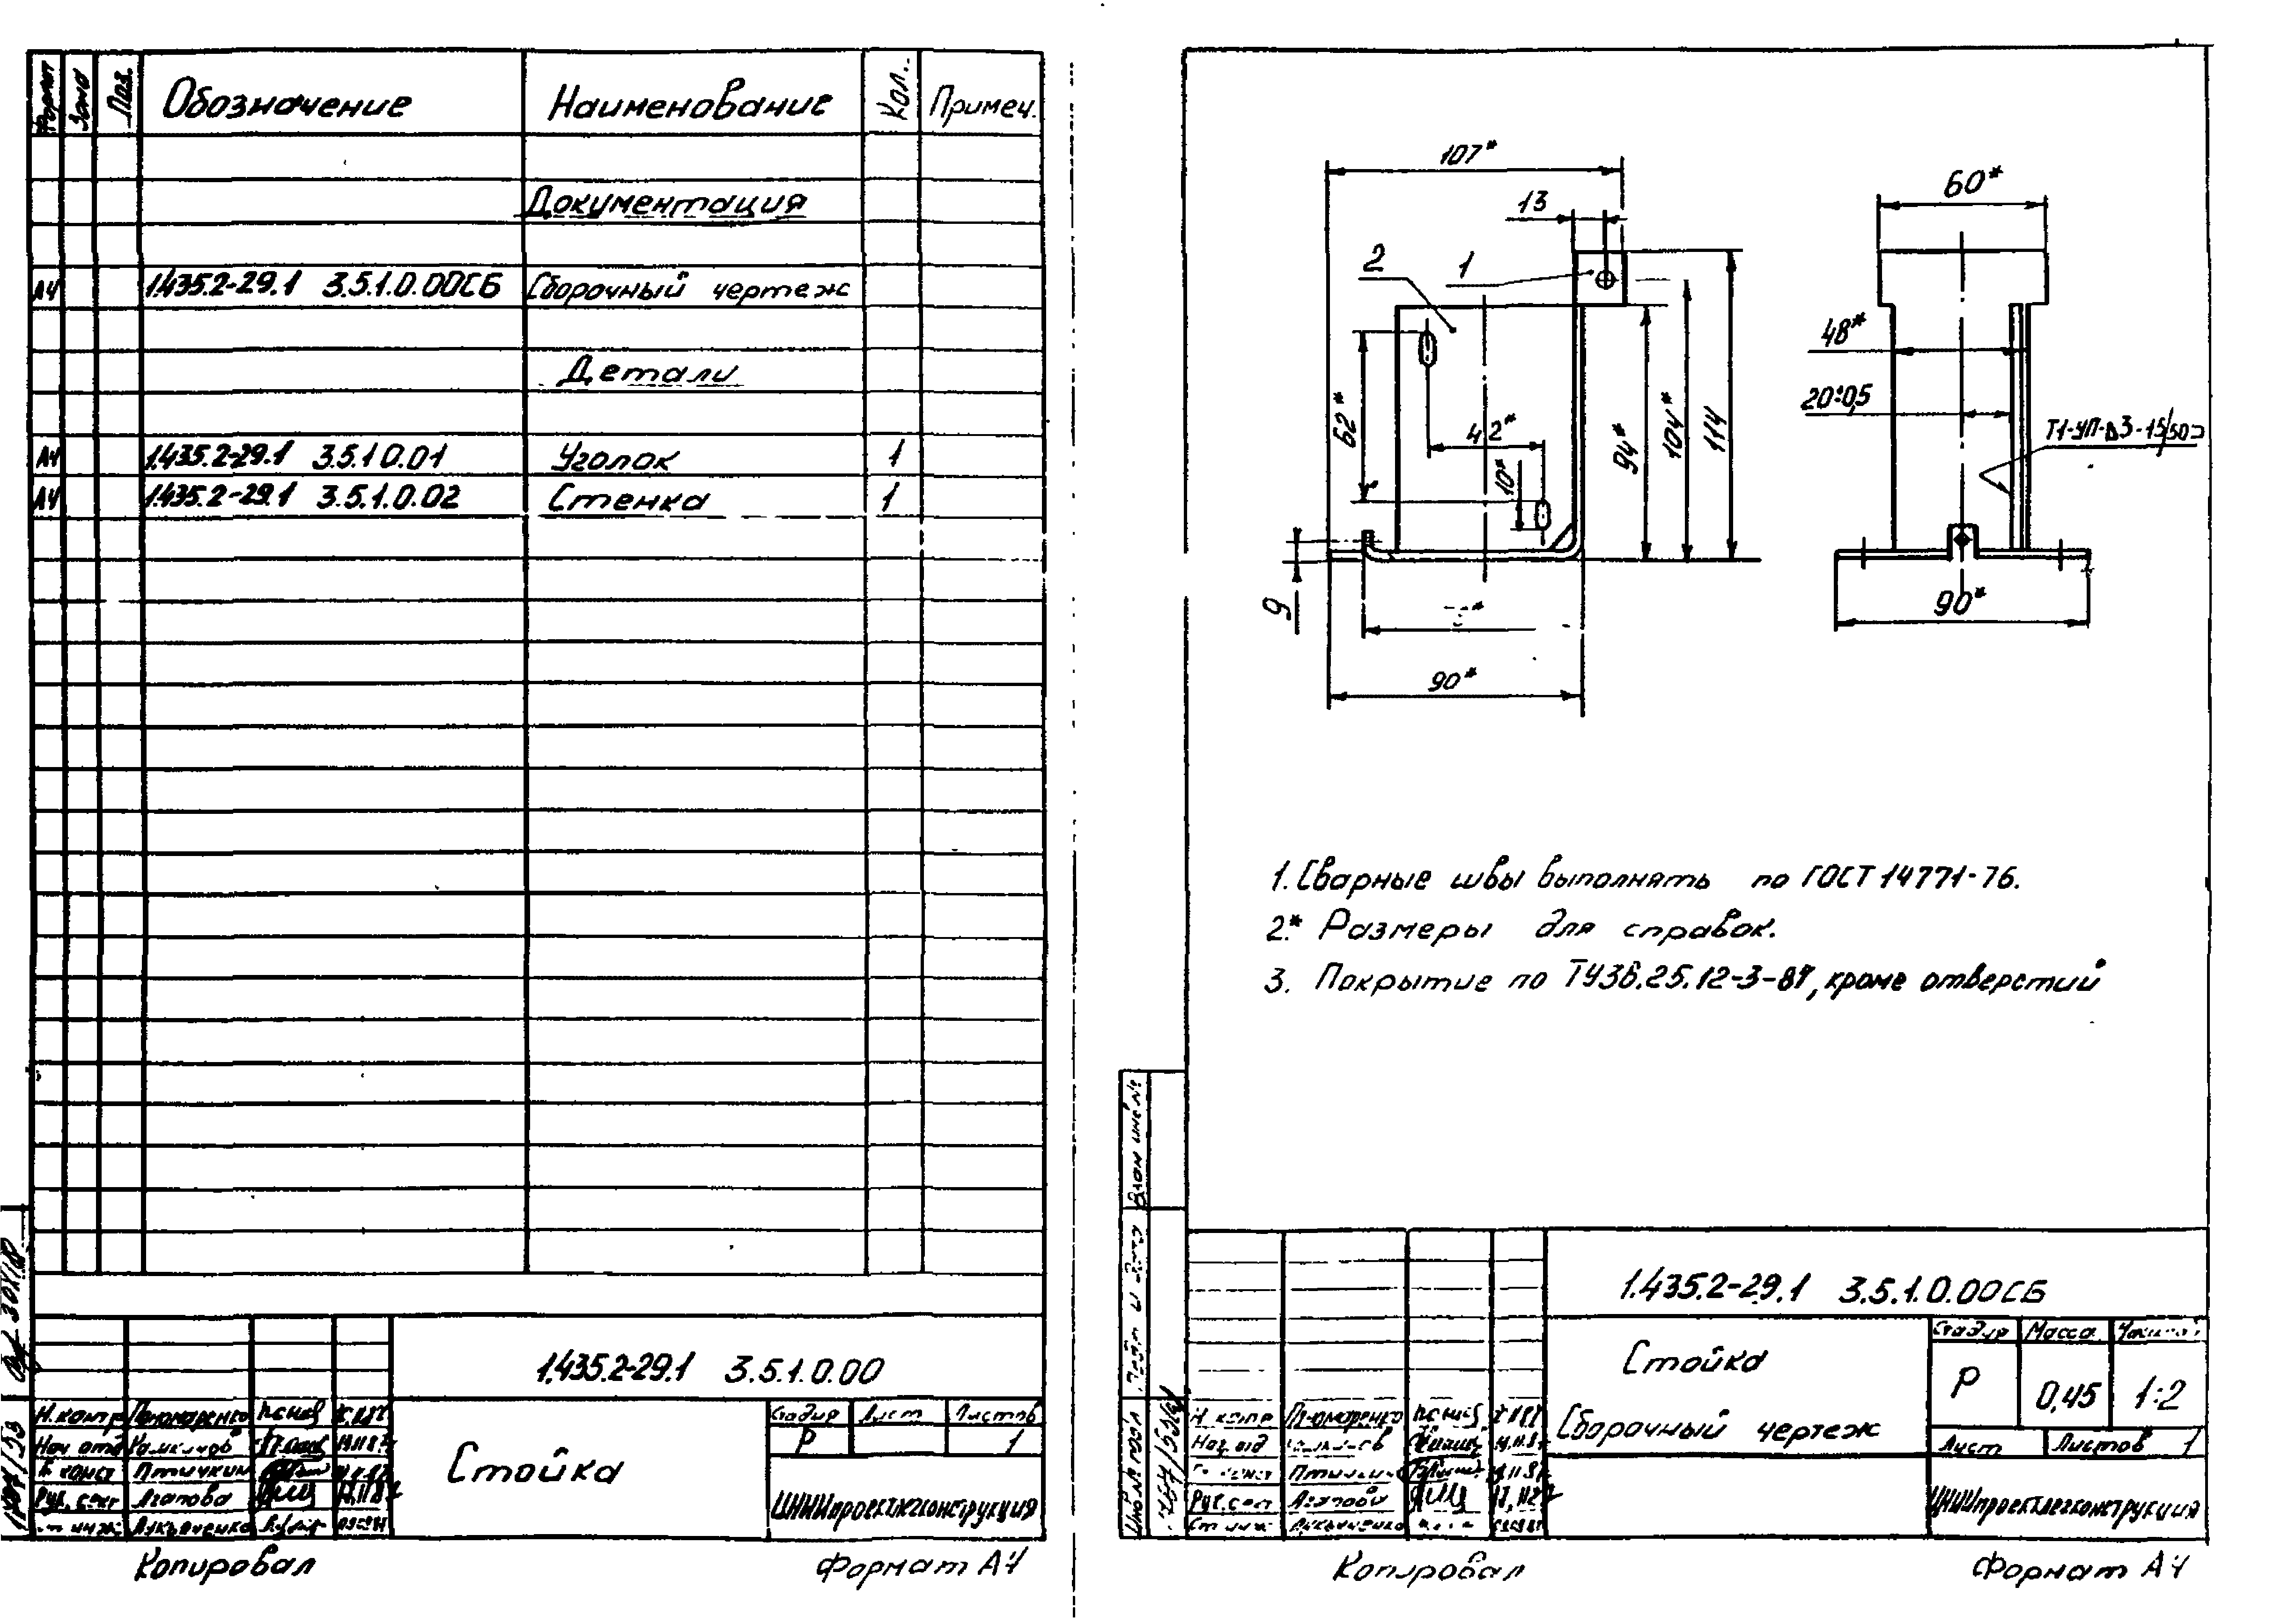 Формат Зона Поз. Обозначение Наименование Кол. Примеч.
Документация
А4 1.435.2-29.1 3.5.1.0.00СБ Сборочный чертеж
Детали
А4 1.435.2-29.1 3.5.1.0.01 Уголок 1
А4 1.435.2-29.1 3.5.1.0.02 Стенка 1
1.435.2-29.1 3.5.1.0.00
Н.контр Пономаренко
Нач отд
Птичкин
Рук. сект Агапова
Стойка
Стадия Лист Листов
Р 1
ЦНИИпроектлегконструкция
Копировал Формат А4
107*
13
2
1
62*
42*
10*
94*
104*
114
9
90*
60*
48*
20±0,5
Т1-УП-Δ3-15/50
90*
1. Сварные швы выполнять по ГОСТ 14771-76.
2.* Размеры для справок.
3. Покрытие по ТУ36.25.12-3-87, кроме отверстий
Взам инв №
Подп и дата
Инв № подл
1.435.2-29.1 3.5.1.0.00СБ
Стойка
Сборочный чертеж
Стадия Масса
Р 0,45 1:2
Лист Листов 1
Н контр Пономаренко
Нач. отд
Рук. сект Агапова
ЦНИИпроектлегконструкция
Копировал Формат А4